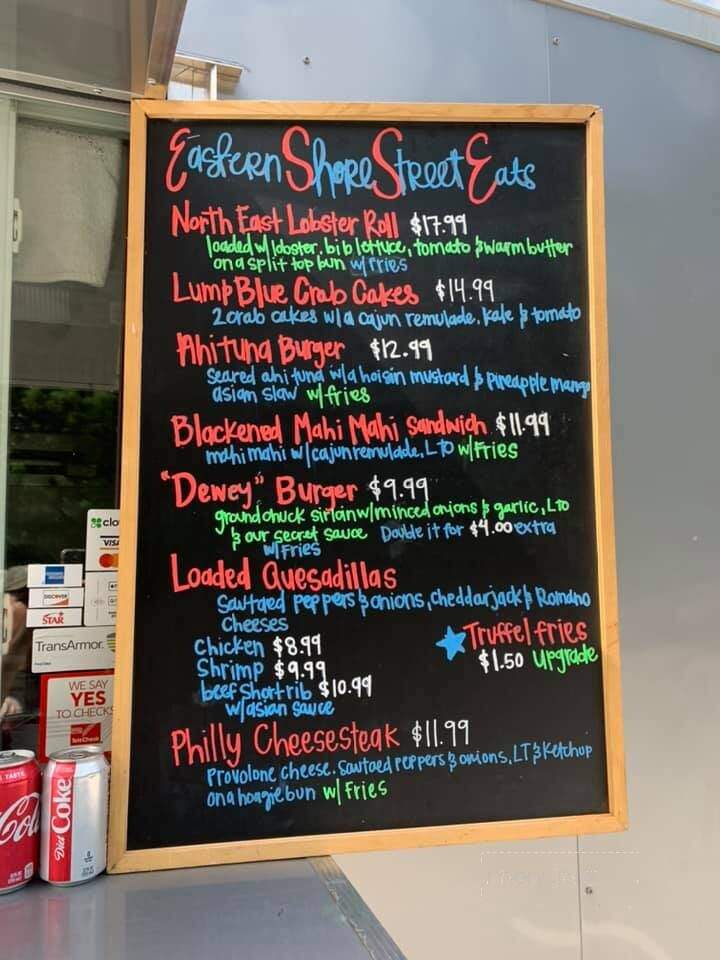 Eastern Shore Street Eats
North East Lobster Roll $17.99
loaded w/ lobster, bib lettuce, tomato & warm butter
on a split top bun w/ fries
Lump Blue Crab Cakes $14.99
2 crab cakes w/ a cajun remulade, kale & tomato
Ahi tuna Burger $12.99
Seared ahi tuna w/a hoisin mustard & pineapple mango
asian slaw w/ fries
Blackened Mahi Mahi Sandwich $11.99
mahi mahi w/ cajun remulade, LTO w/ Fries
"Dewey" Burger $9.99
ground chuck sirlan w/ minced onions & garlic, LTO
& our secret sauce Double it for $4.00 extra
w/ Fries
Loaded Quesadillas
Sautaed peppers & onions, cheddar jack & Romano
Cheeses
Chicken $8.99
Shrimp $9.99
beef Short rib $10.99
w/ asian sauce
Truffel fries
$1.50 upgrade
Philly Cheesesteak $11.99
Provolone cheese. Sautaed peppers & onions, LT & Ketchup
on a hoagie bun w/ Fries
clo
VISA
DISCOVER
STAR
TransArmor.
WE SAY
YES
TO CHECKS
TeleCheck
TASTE
Diet Coke